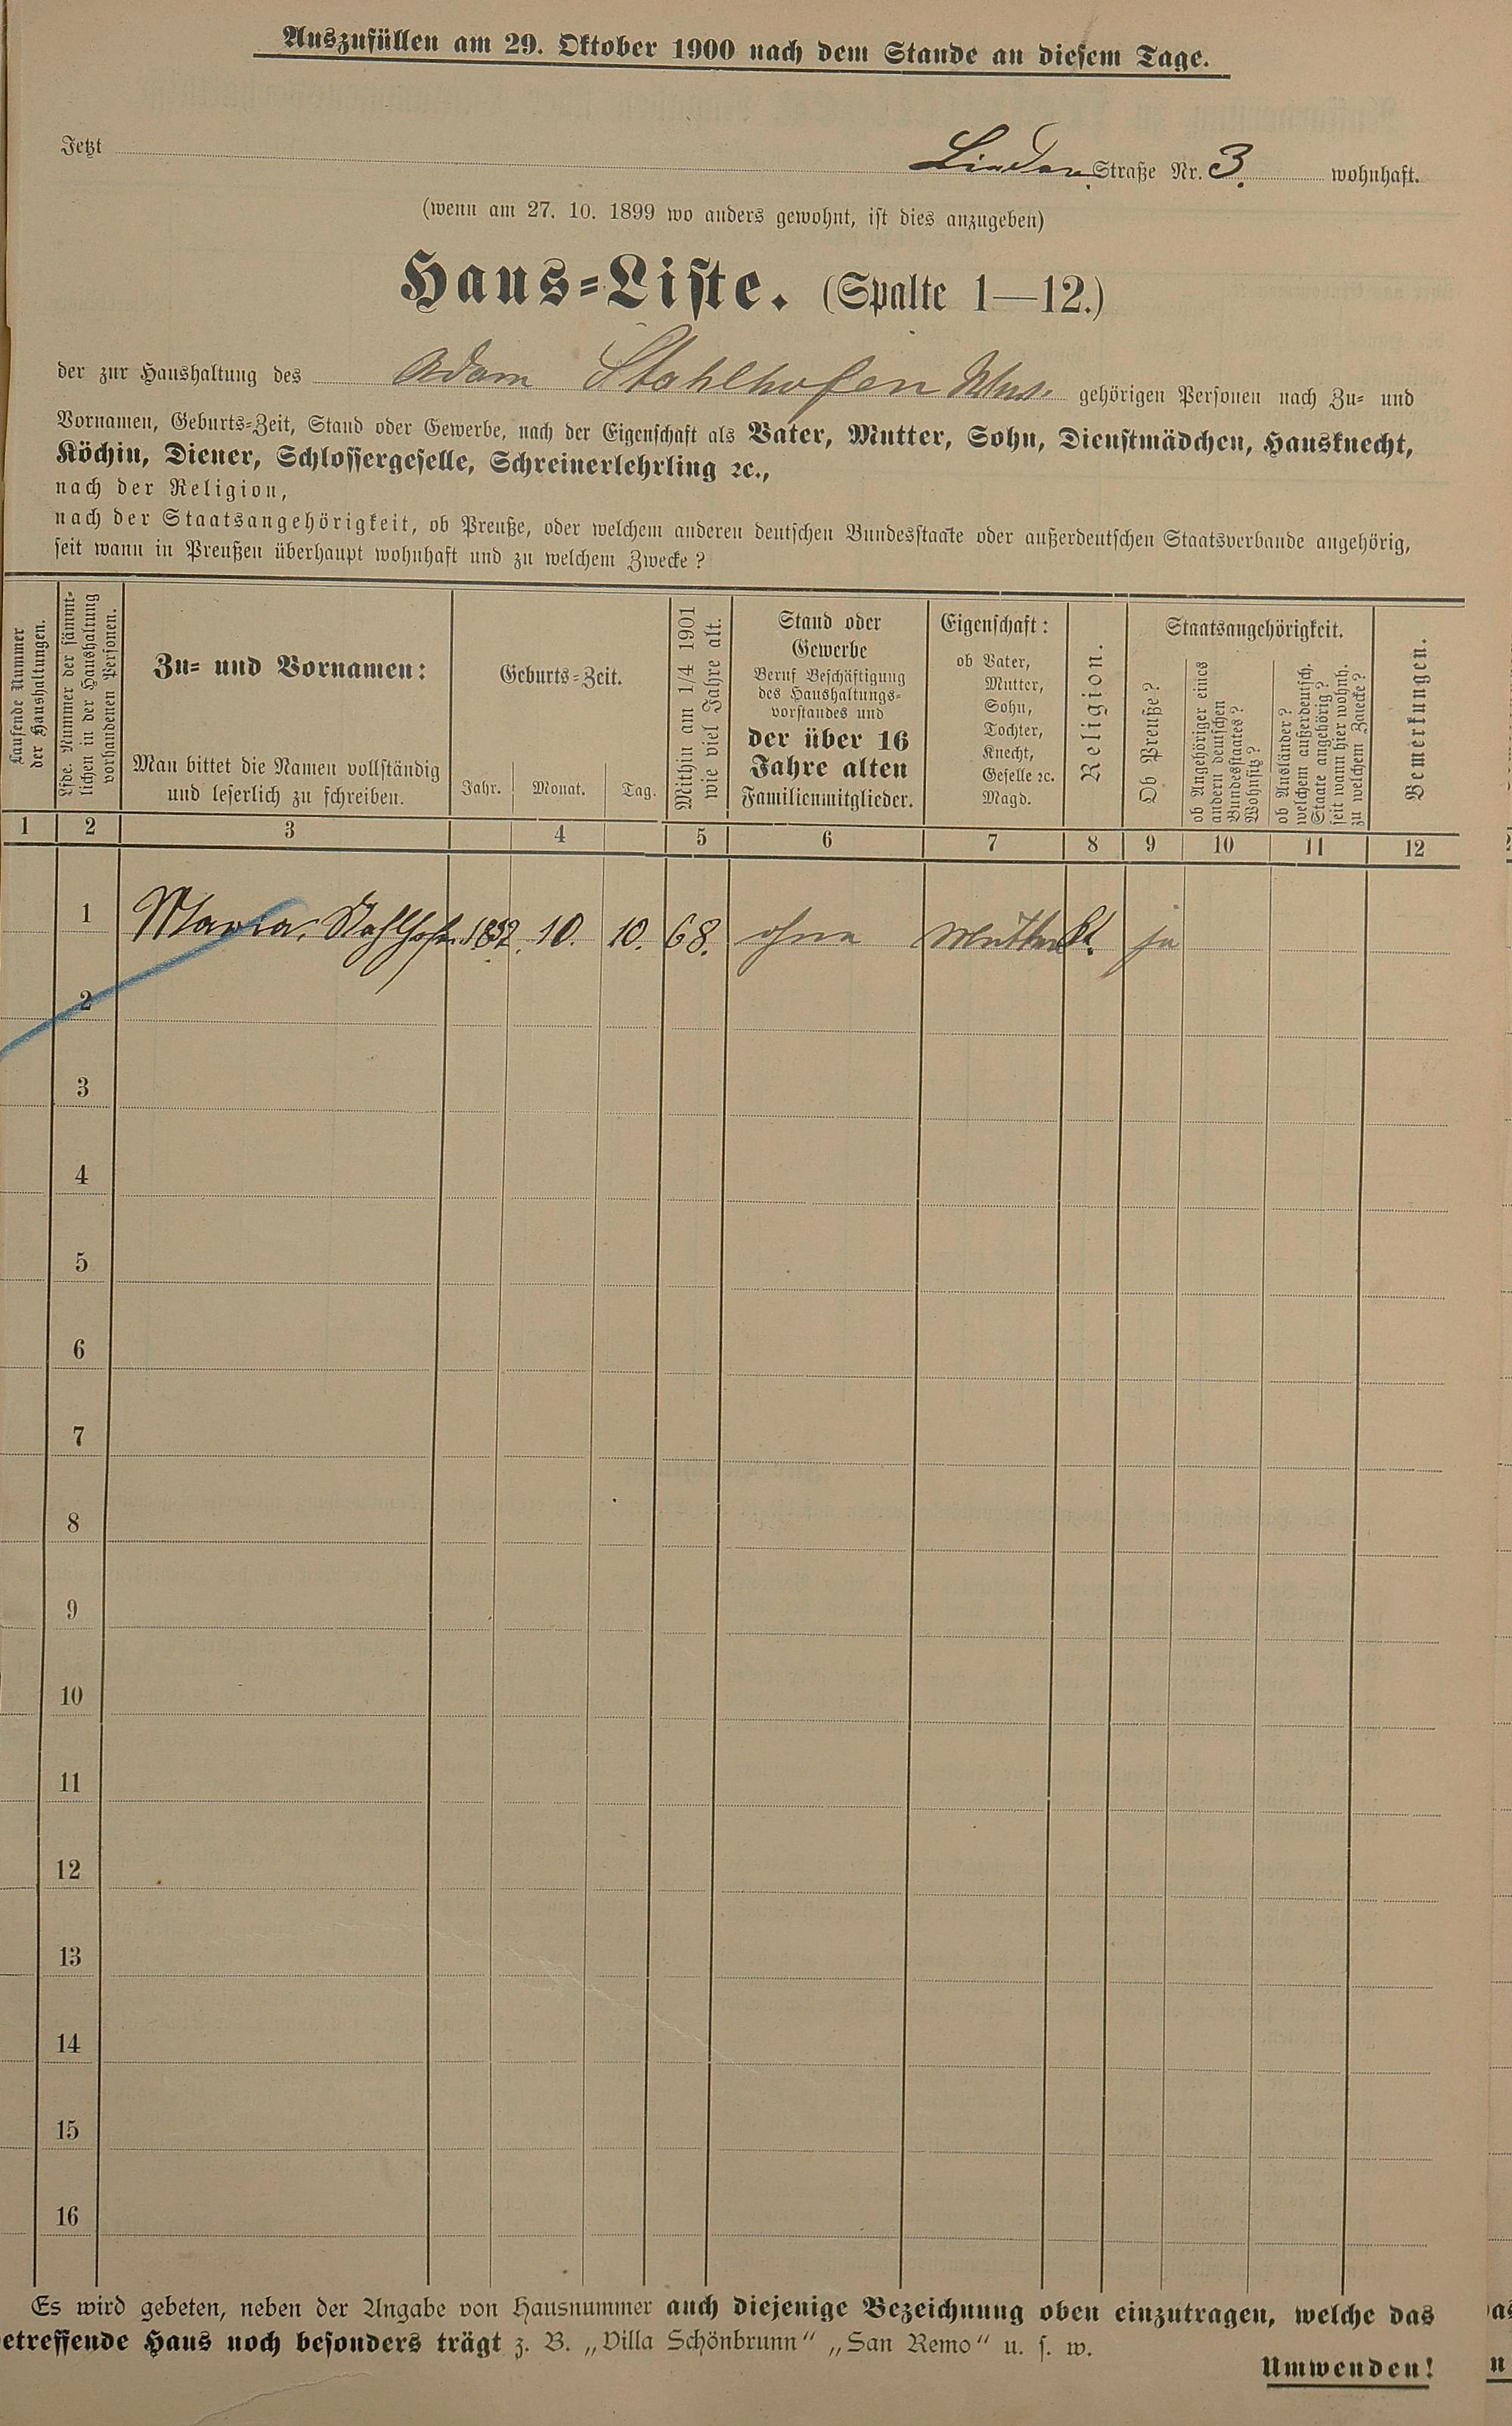 Auszufüllen am 29. Oktober 1900 nach dem Stande an diesem Tage.
Jetzt Linden Straße Nr. 3. wohnhaft.
(wenn am 27. 10. 1899 wo anders gewohnt, ist dies anzugeben)
Haus=Liste. (Spalte 1—12.)
der zur Haushaltung des Adam Stahlhofen Wwe. gehörigen Personen nach Zu= und
Vornamen, Geburts=Zeit, Stand oder Gewerbe, nach der Eigenschaft als Vater, Mutter, Sohn, Dienstmädchen, Hausknecht,
Köchin, Diener, Schlossergeselle, Schreinerlehrling ꝛc.,
nach der Religion,
nach der Staatsangehörigkeit, ob Preuße, oder welchem anderen deutschen Bundesstaate oder außerdeutschen Staatsverbande angehörig,
seit wann in Preußen überhaupt wohnhaft und zu welchem Zwecke?
Laufende Nummer
der Haushaltungen.
Lfde. Nummer der sämmt=
lichen in der Haushaltung
vorhandenen Personen.
Zu= und Vornamen:
Man bittet die Namen vollständig
und leserlich zu schreiben.
Geburts=Zeit.
Jahr. Monat. Tag.
Mithin am 1/4 1901
wie viel Jahre alt.
Stand oder
Gewerbe
Beruf Beschäftigung
des Haushaltungs=
vorstandes und
der über 16
Jahre alten
Familienmitglieder.
Eigenschaft:
ob Vater,
Mutter,
Sohn,
Tochter,
Knecht,
Geselle ꝛc.
Magd.
Religion.
Staatsangehörigkeit.
Ob Preuße?
ob Angehöriger eines
andern deutschen
Bundesstaates?
Wohnsitz?
ob Ausländer?
welchem außerdeutsch.
Staate angehörig?
seit wann hier wohnh.
zu welchem Zwecke?
Bemerkungen.
1 2 3 4 5 6 7 8 9 10 11 12
1 Maria Stahlhofen 1832. 10. 10. 68. ohne Mutter kt. ja
2
3
4
5
6
7
8
9
10
11
12
13
14
15
16
Es wird gebeten, neben der Angabe von Hausnummer auch diejenige Bezeichnung oben einzutragen, welche das
etreffende Haus noch besonders trägt z. B. „Villa Schönbrunn“ „San Remo“ u. s. w.
Umwenden!